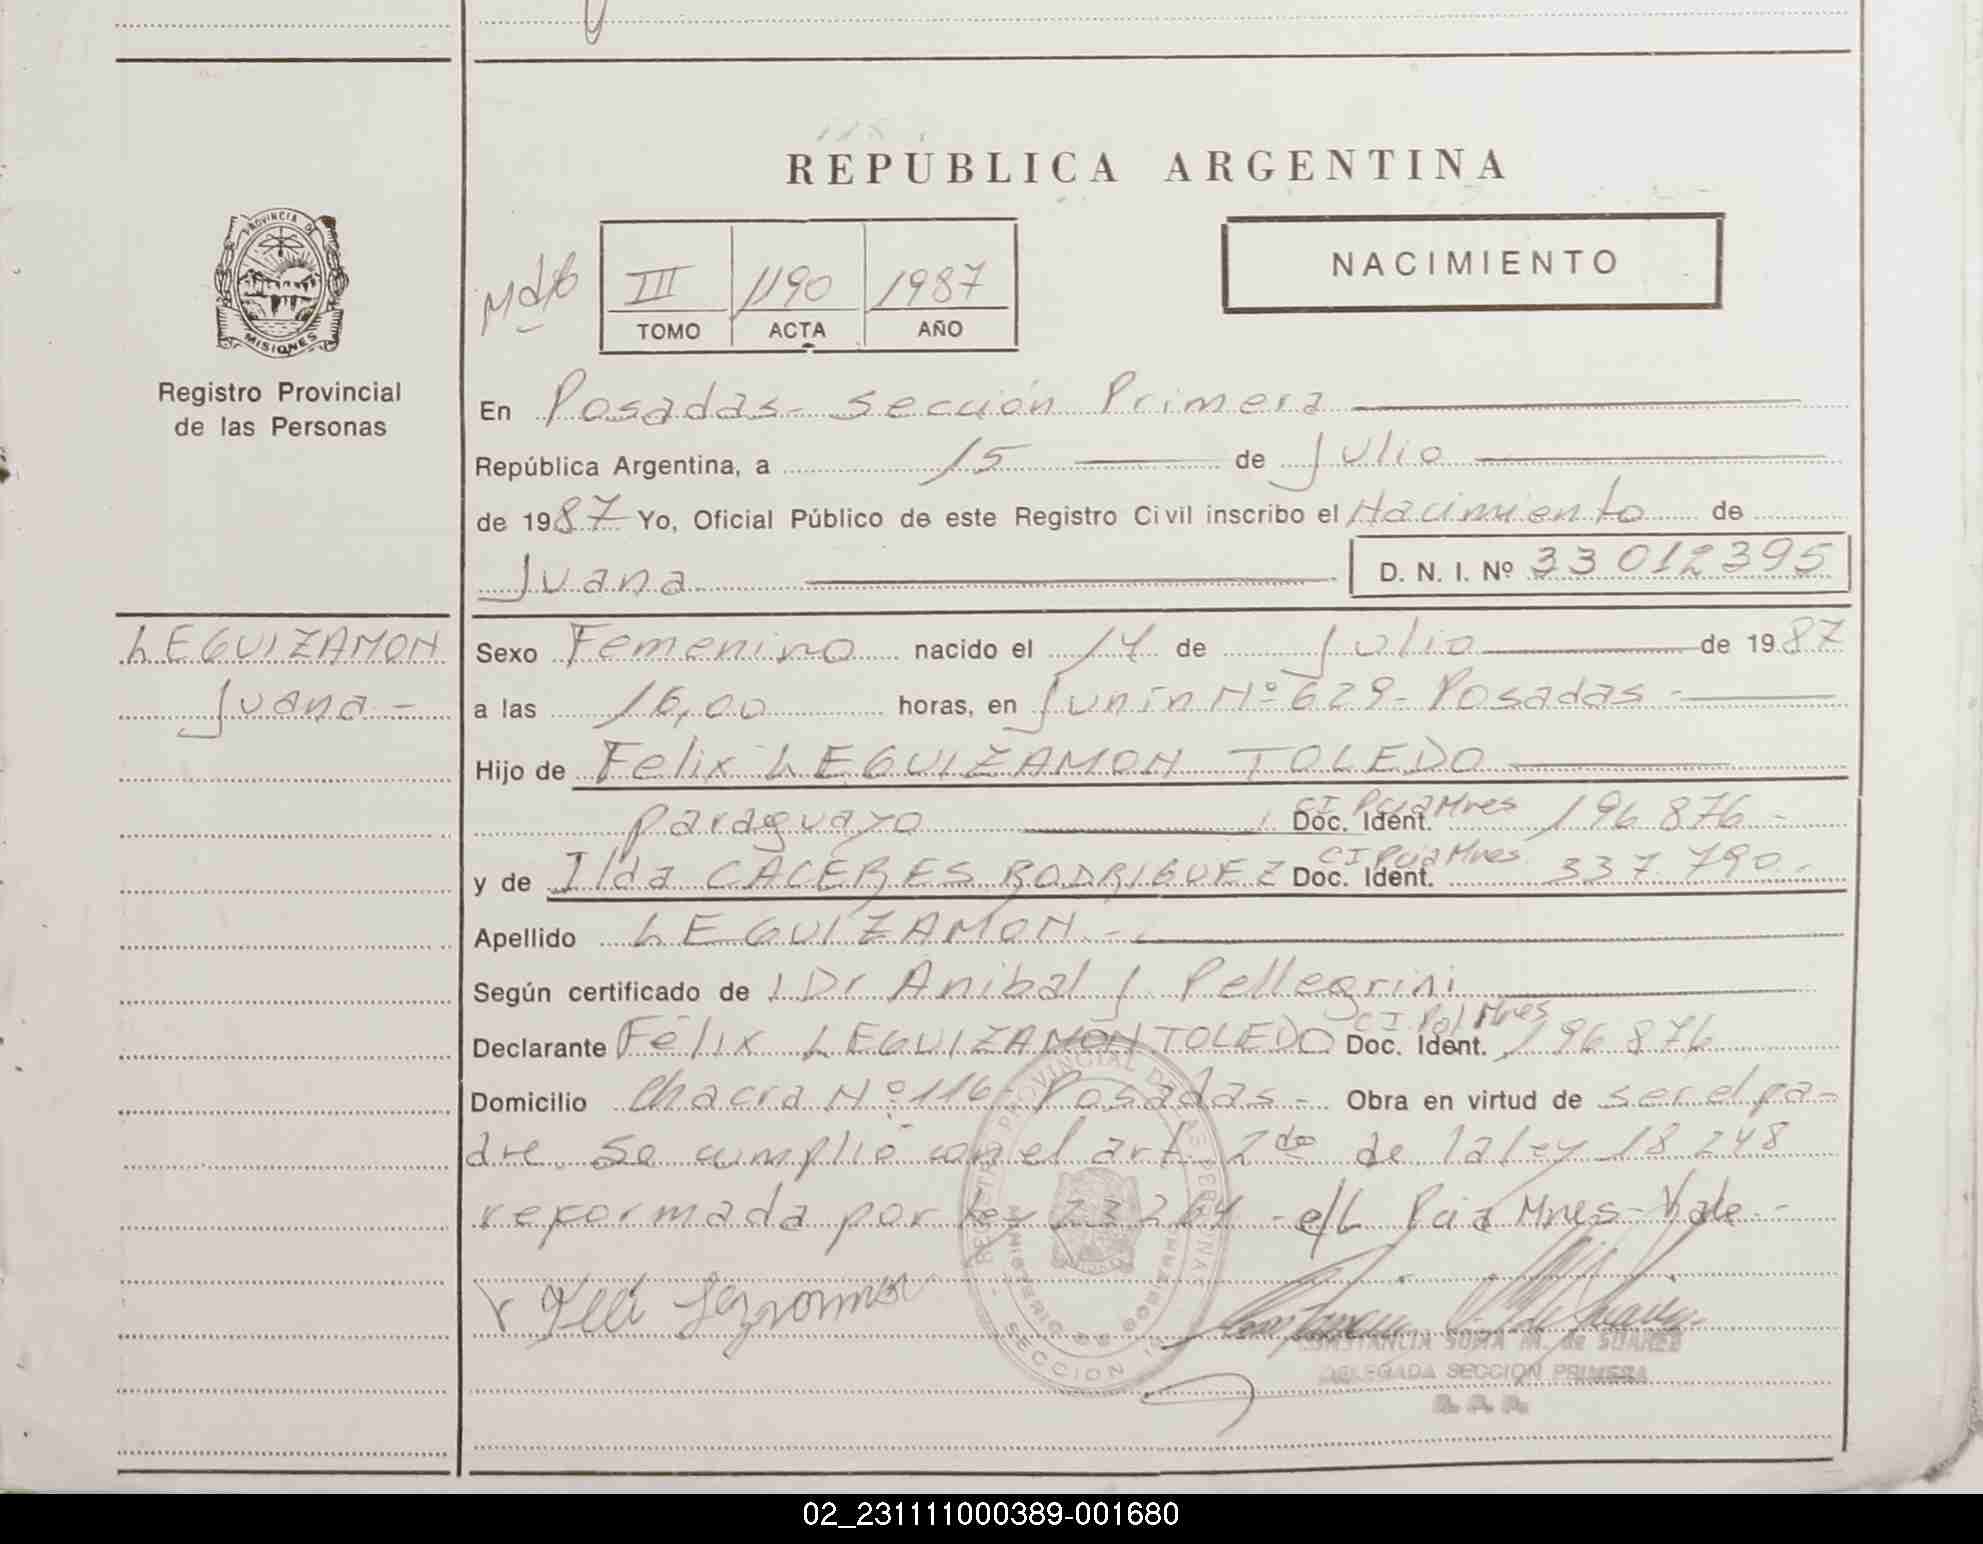 REPUBLICA ARGENTINA
PROVINCIA DE
MISIONES
Registro Provincial
de las Personas
III 1190 1987
TOMO ACTA AÑO
NACIMIENTO
En Posadas - Sección Primera
República Argentina, a 15 de Julio
de 1987 Yo, Oficial Público de este Registro Civil inscribo el Nacimiento de
Juana D. N. I. Nº 33 012395
LEGUIZAMON
Juana -
Sexo Femenino nacido el 14 de Julio de 1987
a las 16,00 horas, en Junín Nº 629 - Posadas -
Hijo de Felix LEGUIZAMON TOLEDO
paraguayo Doc. Ident. CI Pcia Mnes 196 876 -
y de Ilda CACERES RODRIGUEZ Doc. Ident. CI Pcia Mnes 337 790.-
Apellido LEGUIZAMON.-
Según certificado de 1 Dr Anibal J Pellegrini
Declarante Félix LEGUIZAMON TOLEDO Doc. Ident. CI Pol Mnes 196 876
Domicilio Chacra Nº 116 - Posadas - Obra en virtud de ser el pa-
dre. Se cumplió con el art. 2do de la ley 18 248
reformada por Ley 23 264 - e/L Pcia Mnes - Vale -
REGISTRO PROVINCIAL DE LAS PERSONAS
MINISTERIO DE GOBIERNO
SECCION 1º
CONSTANCIA SOFIA M. de SUAREZ
DELEGADA SECCION PRIMERA
R. P. P.
02_231111000389-001680